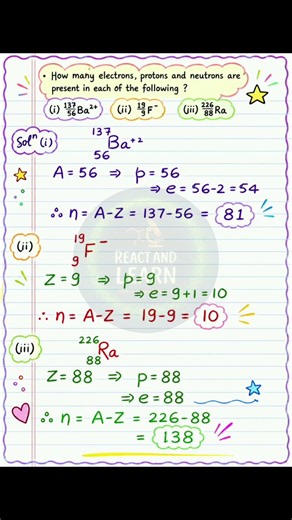 • How many electrons, protons and neutrons are
present in each of the following ?
(i) ¹³⁷₅₆Ba²⁺ (ii) ¹⁹₉F⁻ (iii) ²²⁶₈₈Ra
Solⁿ (i) ¹³⁷₅₆Ba⁺²
A = 56 ⇒ p = 56
⇒ e = 56-2 = 54
∴ n = A-Z = 137-56 = 81
(ii) ¹⁹₉F⁻
REACT AND
LEARN
Z = 9 ⇒ p = 9
⇒ e = 9+1 = 10
∴ n = A-Z = 19-9 = 10
(iii) ²²⁶₈₈Ra
Z = 88 ⇒ p = 88
⇒ e = 88
∴ n = A-Z = 226-88
= 138